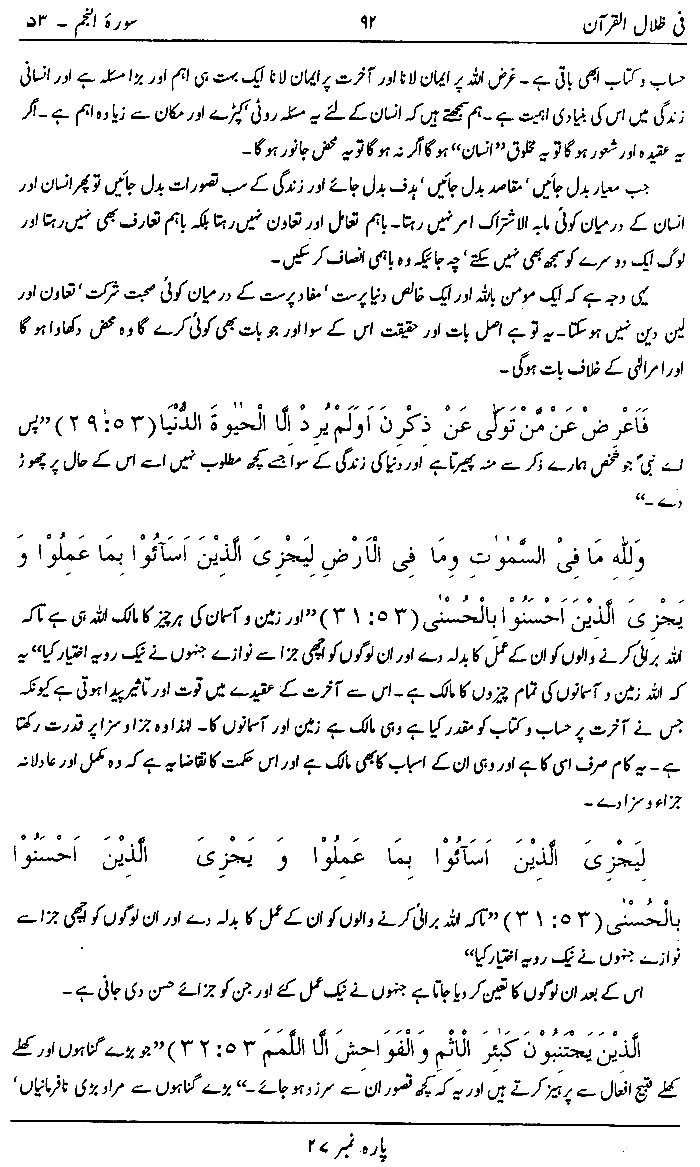 فی ظلال القرآن ۹۲ سورۃ النجم ۔ ۵۳
حساب و کتاب ابھی باقی ہے۔ غرض اللہ پر ایمان لانا اور آخرت پر ایمان لانا ایک بہت ہی اہم اور بڑا مسئلہ ہے اور انسانی
زندگی میں اس کی بنیادی اہمیت ہے۔ ہم سمجھتے ہیں کہ انسان کے لئے یہ مسئلہ روٹی‘ کپڑے اور مکان سے زیادہ اہم ہے۔ اگر
یہ عقیدہ اور شعور ہو گا تو یہ مخلوق ”انسان“ ہو گا اگر نہ ہو گا تو یہ محض جانور ہو گا۔
جب معیار بدل جائیں‘ مقاصد بدل جائیں‘ ہدف بدل جائے اور زندگی کے سب تصورات بدل جائیں تو پھر انسان اور
انسان کے درمیان کوئی مابہ الاشتراک امر نہیں رہتا۔ باہم تعامل اور تعاون نہیں رہتا بلکہ باہم تعارف بھی نہیں رہتا اور
لوگ ایک دوسرے کو سمجھ بھی نہیں سکتے‘ چہ جائیکہ وہ باہمی انصاف کر سکیں۔
یہی وجہ ہے کہ ایک مومن باللہ اور ایک خالص دنیا پرست‘ مفاد پرست کے درمیان کوئی صحبت شرکت‘ تعاون اور
لین دین نہیں ہو سکتا۔ یہ تو ہے اصل بات اور حقیقت اس کے سوا اور جو بات بھی کوئی کرے گا وہ محض دکھاوا ہو گا
اور امر الٰہی کے خلاف بات ہوگی۔
فَاَعْرِضْ عَنْ مَّنْ تَوَلّٰى عَنْ ذِكْرِنَ اَوَلَمْ يُرِدْ اِلَّا الْحَيٰوةَ الدُّنْيَا (۲۹:۵۳) ”پس
اے نبیؐ جو شخص ہمارے ذکر سے منہ پھیرتا ہے اور دنیا کی زندگی کے سوا جسے کچھ مطلوب نہیں اسے اس کے حال پر چھوڑ
دے۔“
وَلِلّٰهِ مَا فِيْ السَّمٰوٰتِ وَمَا فِي الْاَرْضِ لِيَجْزِيَ الَّذِيْنَ اَسَآئُوْا بِمَا عَمِلُوْا وَ
يَجْزِيَ الَّذِيْنَ اَحْسَنُوْا بِالْحُسْنٰى (۳۱:۵۳) ”اور زمین و آسمان کی ہر چیز کا مالک اللہ ہی ہے تاکہ
اللہ برائی کرنے والوں کو ان کے عمل کا بدلہ دے اور ان لوگوں کو اچھی جزا سے نوازے جنہوں نے نیک رویہ اختیار کیا“ یہ
کہ اللہ زمین و آسمانوں کی تمام چیزوں کا مالک ہے۔ اس سے آخرت کے عقیدے میں قوت اور تاثیر پیدا ہوتی ہے کیونکہ
جس نے آخرت پر حساب و کتاب کو مقدر کیا ہے وہی مالک ہے زمین اور آسمانوں کا۔ لہٰذا وہ جزا و سزا پر قدرت رکھتا
ہے۔ یہ کام صرف اسی کا ہے اور وہی ان کے اسباب کا بھی مالک ہے اور اس حکمت کا تقاضا یہ ہے کہ وہ مکمل اور عادلانہ
جزاء و سزا دے۔
لِيَجْزِيَ الَّذِيْنَ اَسَآئُوْا بِمَا عَمِلُوْا وَ يَجْزِيَ الَّذِيْنَ اَحْسَنُوْا
بِالْحُسْنٰى (۳۱:۵۳) ”تاکہ اللہ برائی کرنے والوں کو ان کے عمل کا بدلہ دے اور ان لوگوں کو اچھی جزا سے
نوازے جنہوں نے نیک رویہ اختیار کیا“
اس کے بعد ان لوگوں کا تعین کر دیا جاتا ہے جنہوں نے نیک عمل کئے اور جن کو جزائے حسن دی جانی ہے۔
الَّذِيْنَ يَجْتَنِبُوْنَ كَبٰئِرَ الْاِثْمِ وَالْفَوَاحِشَ اِلَّا اللَّمَمَ ۳۲:۵۳) ”جو بڑے گناہوں اور کھلے
کھلے قبیح افعال سے پرہیز کرتے ہیں اور یہ کہ کچھ قصور ان سے سرزد ہو جائے۔“ بڑے گناہوں سے مراد بڑی نافرمانیاں‘
پارہ نمبر ۲۷